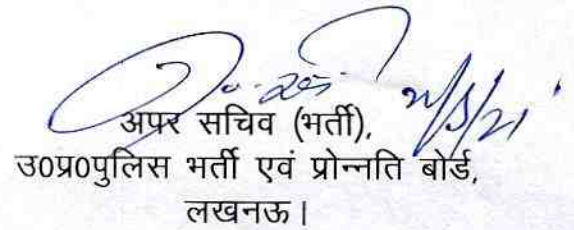 अपर सचिव (भर्ती),
उ०प्र०पुलिस भर्ती एवं प्रोन्नति बोर्ड,
लखनऊ।